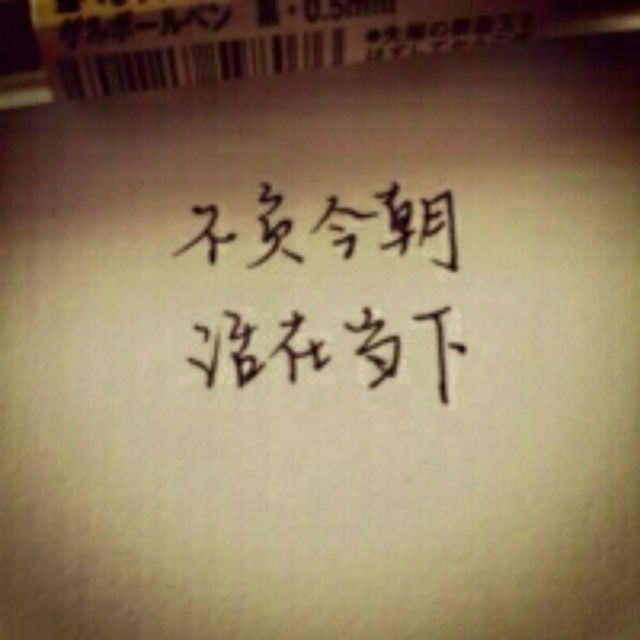 ゲルボールペン 黒・0.5mm
不负今朝
活在当下